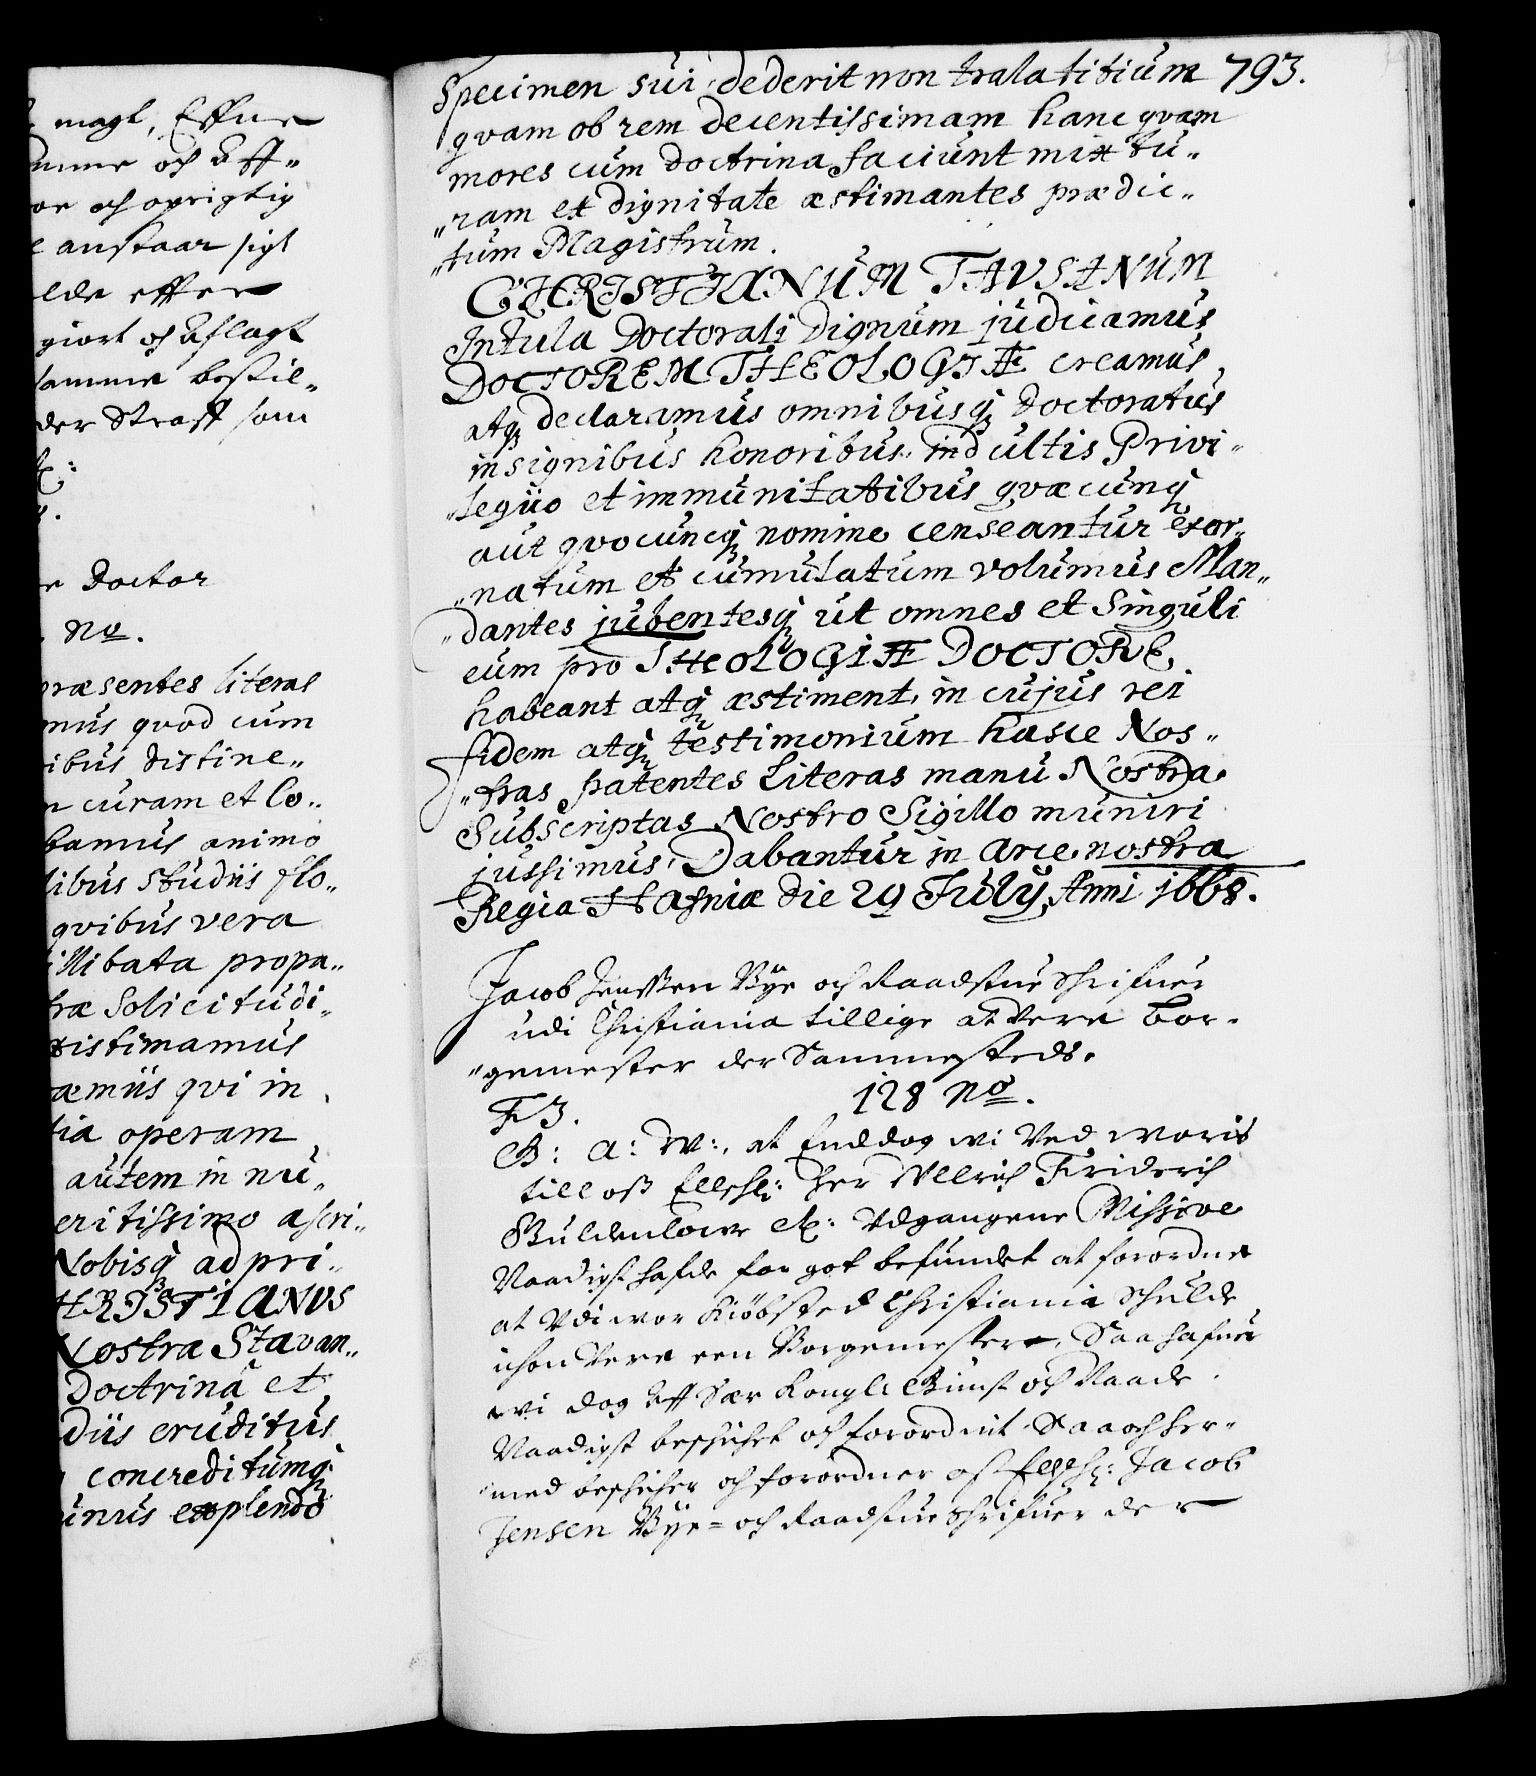 magt, Effter
amme och Aff„
or och oprigtig
e anstaar sigt
lde effter
giort och Aflagt
samme bestil„
der Straff som
etc:
r Doctor
No.
præsentes literas
mus qvod cum
ibus distinc„
m curam et Co„
bamus animo
libus studiis flo„
qvibus vera
illibata propa„
træ Solicitudi„
xistimamus
æmiis qvi in
tia operam
autem in nu„
eritissimo ascri„
Nobisq ad pri„
HRISTIANVS
Nostra Stavan„
Doctrinâ et
diis eruditus
concreditumq
inus explendo
Specimen sui dederit non tralatitium 793.
qvam ob rem decentissimam hanc qvam
mores cum doctrina faciunt mixtu„
„ram et dignitate æstimantes prædic„
„tum Magistrum.
CHRISTIANUM TAVSANUM
Intula Doctorali dignum judicamus
DOCTOREM THEOLOGIÆ creamus,
atq declaramus omnibusq Doctoratus
insignibus honoribus indultis Privi„
„legiio et immunitatibus qvæcunq
aut qvocuncq nomine censeantur exor„
„natum et cumulatum volumus Man„
„dantes jubentesq ut omnes et Singuli
eum pro THEOLOGIÆ DOCTORE,
habeant atq æstiment, in cujus rei
fidem atq testimonium hasce Nos„
„tras patentes Literas manu Nostra
Subscriptas Nostro Sigillo muniri
jussimus, Dabantur in Arce nostra
Regia Hafniæ die 29 July, Anni 1668.
Jacob Jenssen Bye och Raadstue Schrifuer
udi Christiania tillige at Vere Bor„
„gemester der Sammesteds.
F3. 128 No.
G: A: W:, at Enddog wi Ved woris
till oss Elschl: Her Ullrich Friderich
Guldenlowe etc: Udgangene Missive
Naadigst hafde for got befundet at forordne
at Udi wor Kiöbsted Christiania Schulde
ichon Vere een Borgemester, Saa hafuer
wi dog Aff Sær Kongl: Gunst och Naade
Naadigst beschichet och forordnit Saa och her„
„med beschicher och forordner os Elschl: Jacob
Jensen Bye= och Raadstue Schrifuer der